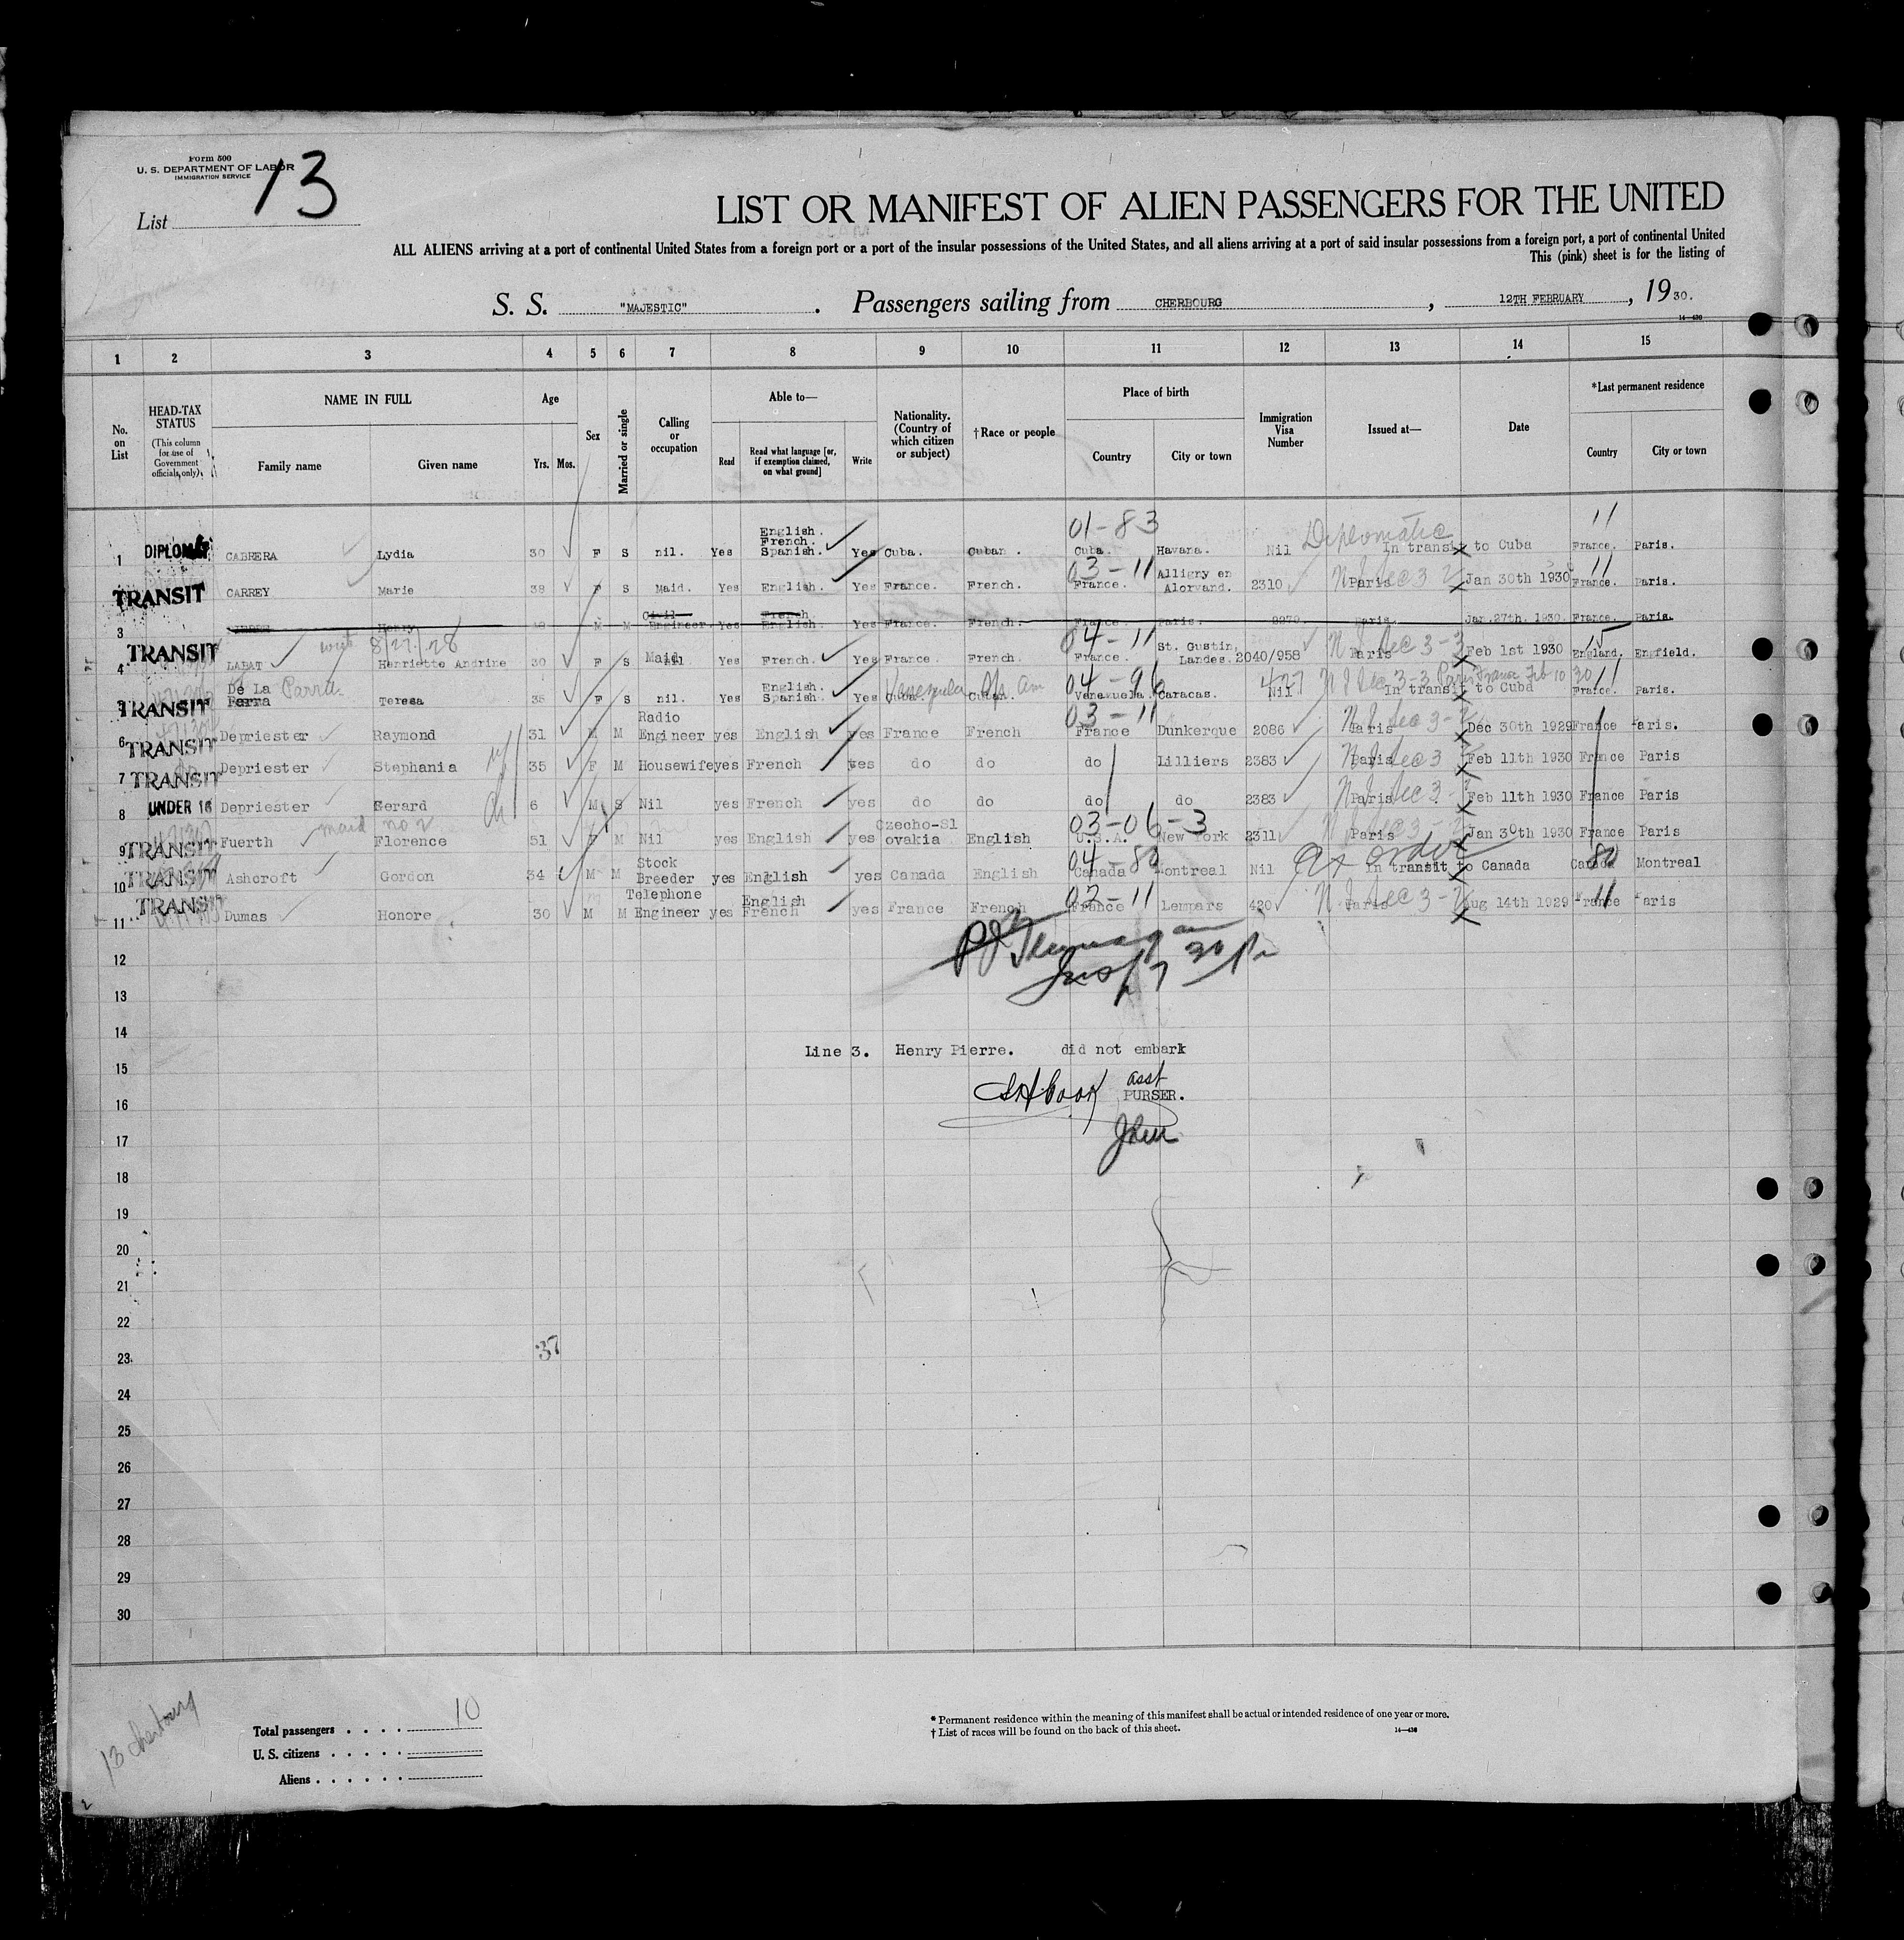 Form 500
U. S. DEPARTMENT OF LABOR
IMMIGRATION SERVICE
List 13
LIST OR MANIFEST OF ALIEN PASSENGERS FOR THE UNITED
ALL ALIENS arriving at a port of continental United States from a foreign port or a port of the insular possessions of the United States, and all aliens arriving at a port of said insular possessions from a foreign port, a port of continental United
This (pink) sheet is for the listing of
S. S. "MAJESTIC". Passengers sailing from CHERBOURG, 12TH FEBRUARY, 1930.
14—430
1 2 3 4 5 6 7 8 9 10 11 12 13 14 15
No. on List
HEAD-TAX STATUS (This column for use of Government officials only)
NAME IN FULL Family name Given name
Age Yrs. Mos.
Sex
Married or single
Calling or occupation
Able to— Read Read what language [or, if exemption claimed, on what ground] Write
Nationality. (Country of which citizen or subject)
†Race or people
Place of birth Country City or town
Immigration Visa Number
Issued at—
Date
*Last permanent residence Country City or town
01-83 Diplomatic 11
1 DIPLOMAT CABRERA Lydia 30 F S nil. Yes English. French. Spanish. Yes Cuba. Cuban. Cuba. Havana. Nil In transit to Cuba France. Paris.
03-11 11
2 TRANSIT CARREY Marie 38 F S Maid. Yes English. Yes France. French. France. Alligny en Alorvand. 2310 Paris Jan 30th 1930 France. Paris.
3 Henry M M Civil Engineer Yes French English. Yes France. French. France. Paris. 2270 Paris. Jan.27th. 1930. France. Paris.
04-11 15
4 TRANSIT LABAT Henriette Andrine 30 F S Maid nil Yes French. Yes France. French. France. St. Gustin, Landes. 2040/958 Paris Feb 1st 1930 England. Enfield.
04-96 427 11
5 TRANSIT De La Ferra Parra Teresa 35 F S nil. Yes English. Spanish. Yes Cuba. Venezuela Cuban. Sp. Am Venezuela. Caracas. Nil In transit to Cuba Paris France Feb 10 30 France. Paris.
03-11
6 TRANSIT Depriester Raymond 31 M M Radio Engineer yes English yes France French France Dunkerque 2086 Paris Dec 30th 1929 France Paris.
7 TRANSIT Depriester Stephania 35 F M Housewife yes French yes do do do Lilliers 2383 Paris Feb 11th 1930 France Paris
8 UNDER 16 Depriester Gerard 6 M S Nil yes French yes do do do do 2383 Paris Feb 11th 1930 France Paris
maid no 2 03-06-3
9 TRANSIT Fuerth Florence 51 F M Nil yes English yes Czecho-Sl ovakia English U.S.A. New York 2311 Paris Jan 30th 1930 France Paris
04-80 80
10 TRANSIT Ashcroft Gordon 34 M M Stock Breeder yes English yes Canada English Canada Montreal Nil In transit to Canada Canada Montreal
11
11 TRANSIT Dumas Honore 30 M M Telephone Engineer yes English French yes France French France Lempars 420 Paris Aug 14th 1929 France Paris
12
13
14
Line 3. Henry Pierre. did not embark
15
asst
16 PURSER.
17
18
19
20
21
22
37
23
24
25
26
27
28
29
30
13 cherbourg
Total passengers . . . . 10
U. S. citizens . . . . .
Aliens . . . . . .
* Permanent residence within the meaning of this manifest shall be actual or intended residence of one year or more.
† List of races will be found on the back of this sheet.
14—430
2